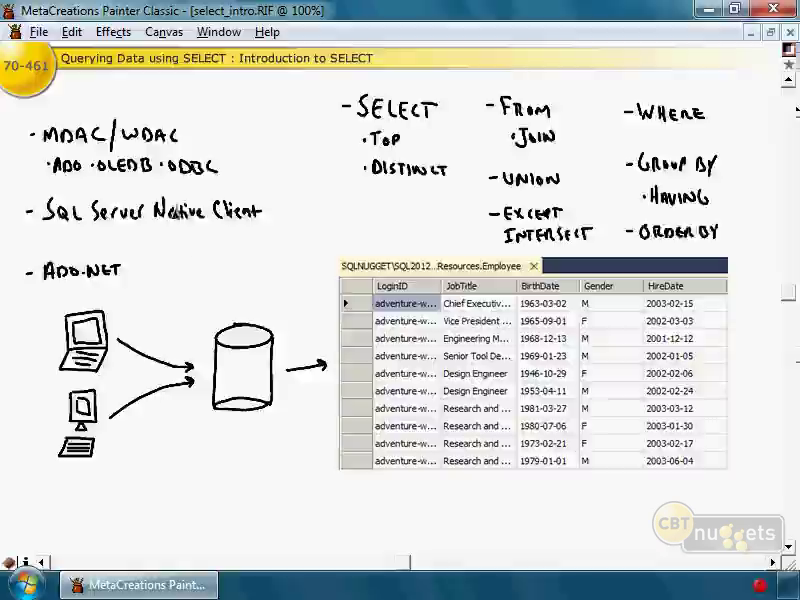 MetaCreations Painter Classic - [select_intro.RIF @ 100%]
File Edit Effects Canvas Window Help
70-461
Querying Data using SELECT : Introduction to SELECT
- MDAC/WDAC
· ADO · OLEDB · ODBC
- SQL Server Native Client
- ADO.NET
- SELECT
· TOP
· DISTINCT
- FROM
· JOIN
- UNION
- EXCEPT
INTERSECT
- WHERE
- GROUP BY
· HAVING
- ORDER BY
SQLNUGGET\SQL2012...Resources.Employee
LoginID JobTitle BirthDate Gender HireDate
adventure-w... Chief Executiv... 1963-03-02 M 2003-02-15
adventure-w... Vice President ... 1965-09-01 F 2002-03-03
adventure-w... Engineering M... 1968-12-13 M 2001-12-12
adventure-w... Senior Tool De... 1969-01-23 M 2002-01-05
adventure-w... Design Engineer 1946-10-29 F 2002-02-06
adventure-w... Design Engineer 1953-04-11 M 2002-02-24
adventure-w... Research and ... 1981-03-27 M 2003-03-12
adventure-w... Research and ... 1980-07-06 F 2003-01-30
adventure-w... Research and ... 1973-02-21 F 2003-02-17
adventure-w... Research and ... 1979-01-01 M 2003-06-04
CBT nuggets
MetaCreations Paint...